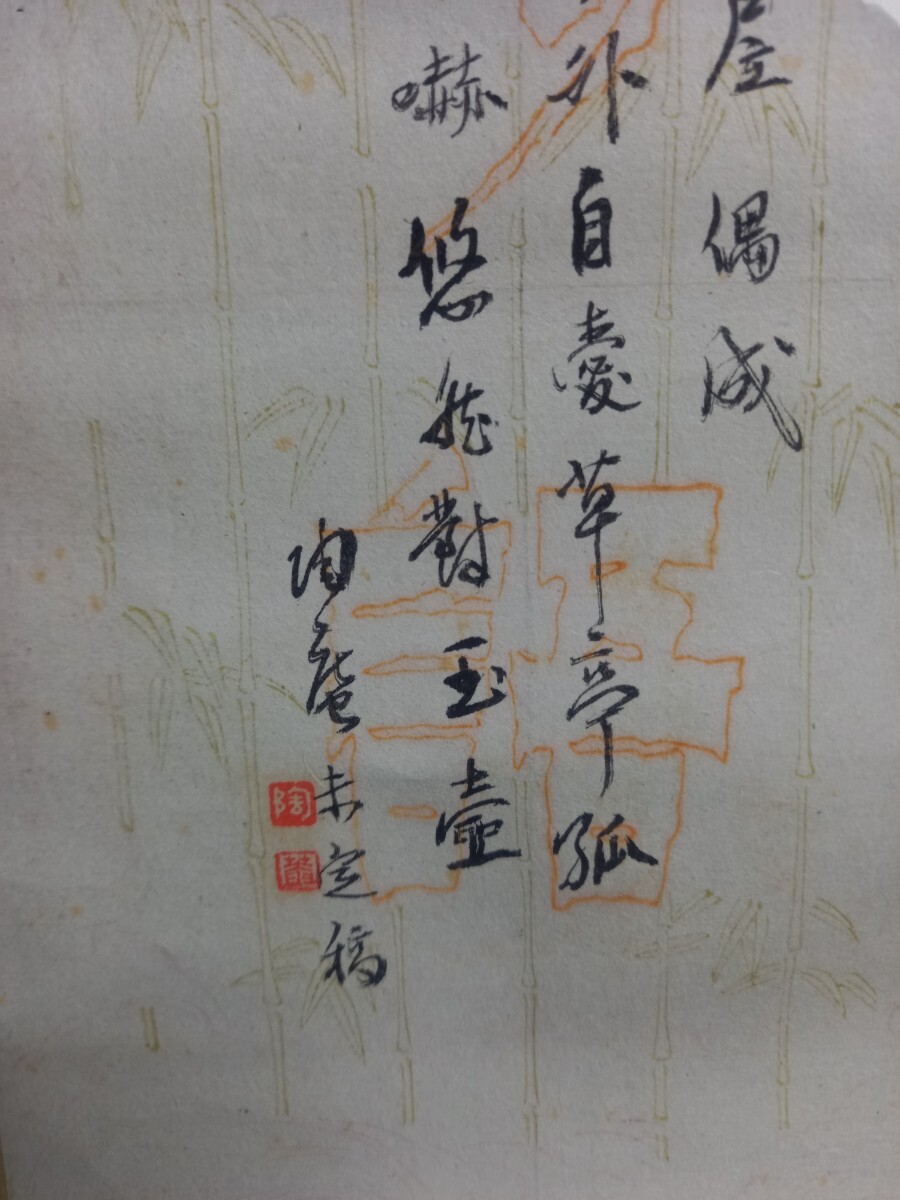 屋偶成
外自爱草亭孤
嚇悠然對玉壺
陶庵未定稿
陶